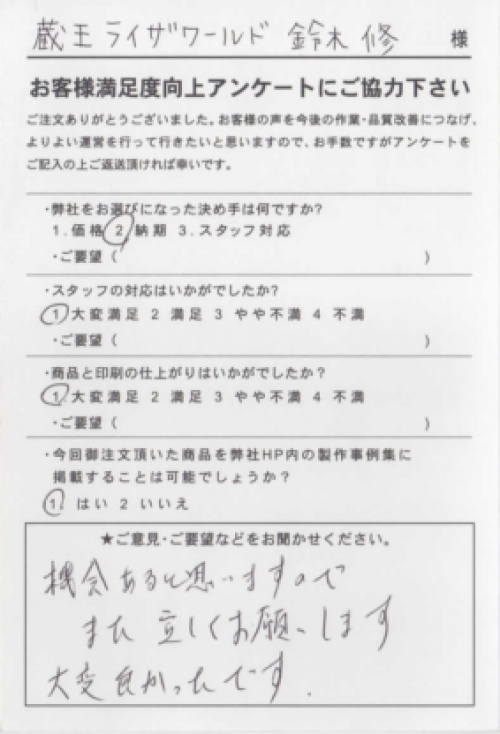 蔵王ライザワールド 鈴木 修 様
お客様満足度向上アンケートにご協力下さい
ご注文ありがとうございました。お客様の声を今後の作業・品質改善につなげ、
よりよい運営を行って行きたいと思いますので、お手数ですがアンケートを
ご記入の上ご返送頂ければ幸いです。
・弊社をお選びになった決め手は何ですか?
1.価格 2.納期 3.スタッフ対応
・ご要望( )
・スタッフの対応はいかがでしたか?
1 大変満足 2 満足 3 やや不満 4 不満
・ご要望( )
・商品と印刷の仕上がりはいかがでしたか?
1 大変満足 2 満足 3 やや不満 4 不満
・ご要望( )
・今回御注文頂いた商品を弊社HP内の製作事例集に
掲載することは可能でしょうか?
1. はい 2 いいえ
★ご意見・ご要望などをお聞かせください。
機会あると思いますので
また 宜しくお願いします
大変良かったです.